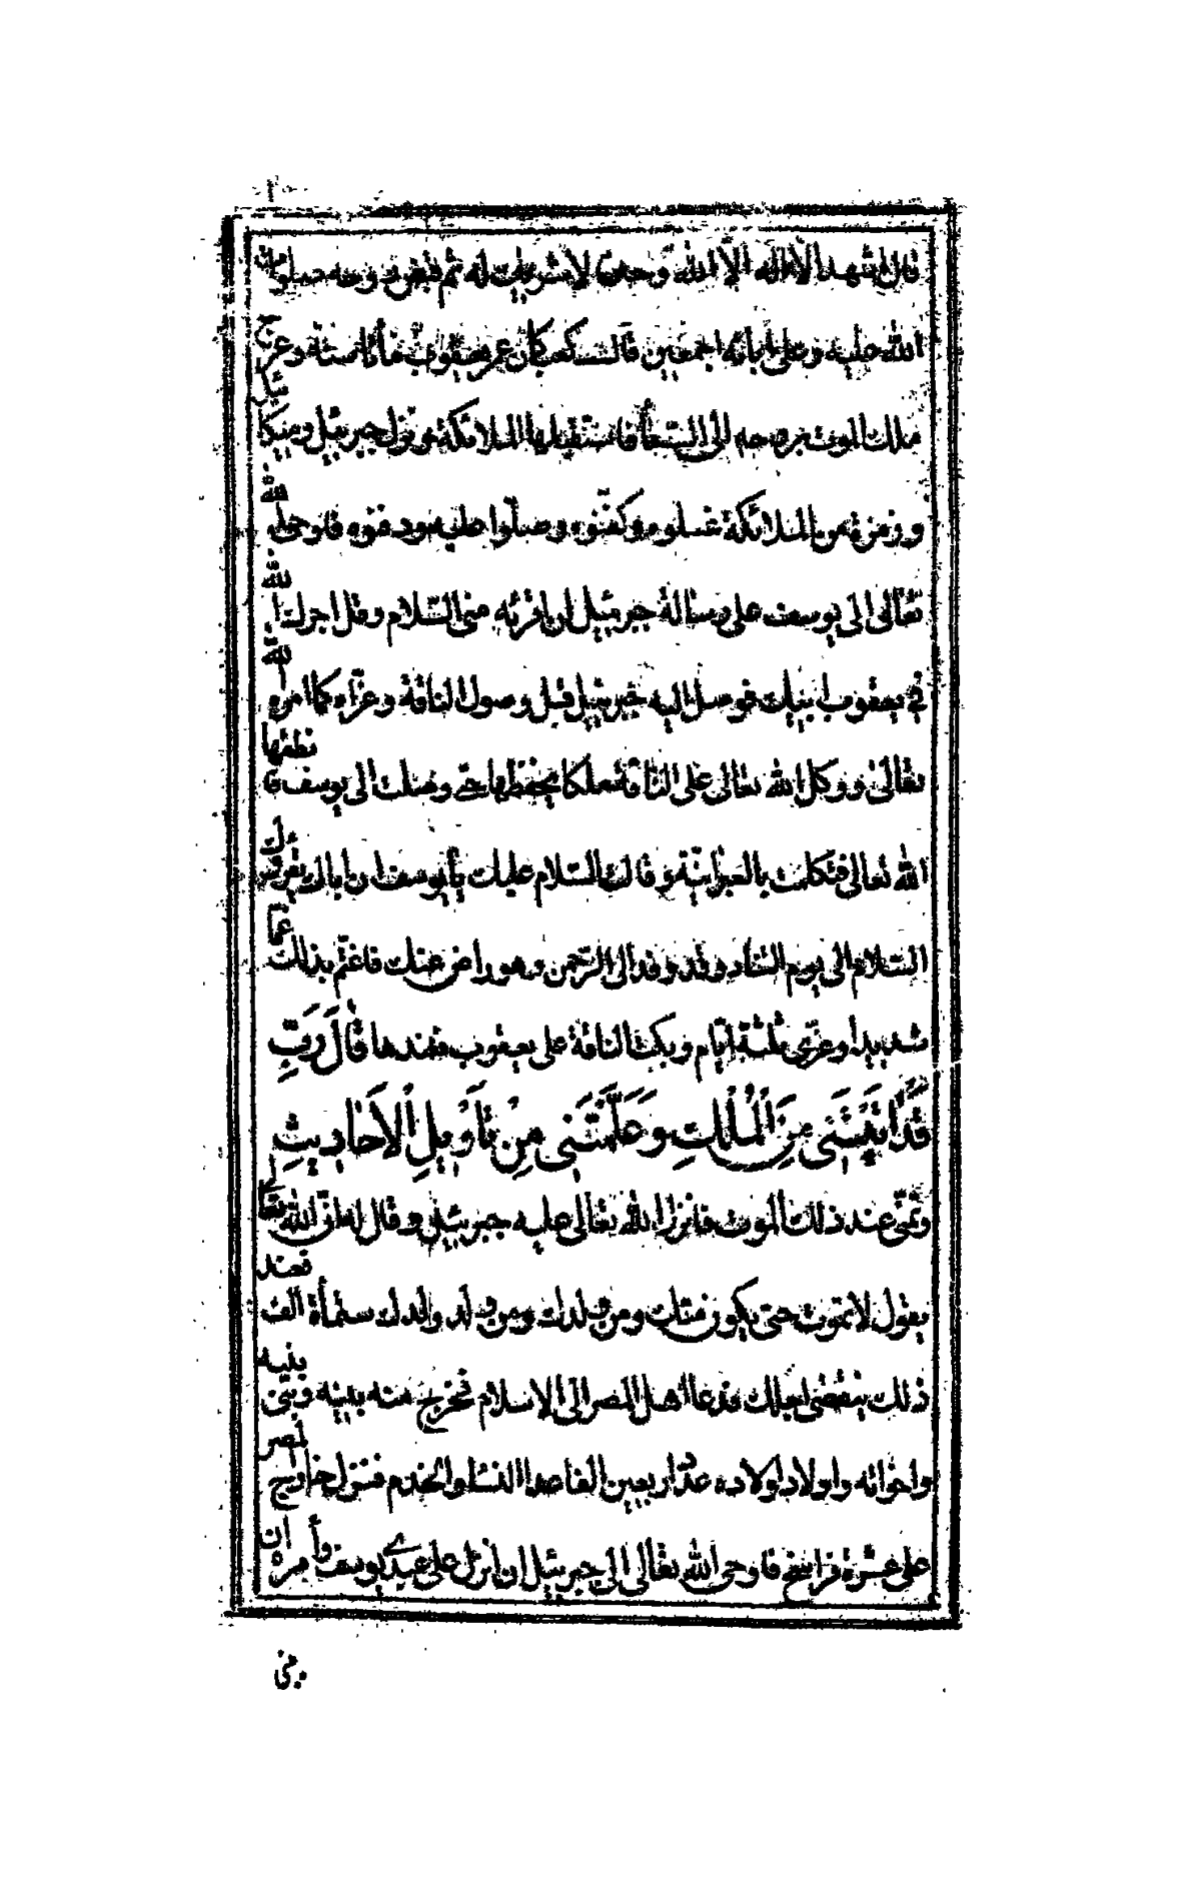 قال اشهد ان لا اله الا الله وحده لا شريك له ثم قبض روحه صلوات
الله عليه وعلى ابائه اجمعين قال كعب كان عمر يعقوب مأتا سنة وعرج
ملك الموت بروحه الى السمأ فاستقبلها الملائكة ونزل جبرئيل وميكائيل
وزمرة من الملائكة غسلوه وكفنوه وصلوا عليه ودفنوه فاوحى الله
تعالى الى يوسف على رسالة جبرئيل ان اقرئه منى السّلام وقل اجرك الله
في يعقوب ابيك فوصل اليه جبرئيل قبل وصول الناقة وعزّاه كما امره الله
تعالى ووكل الله تعالى على الناقة ملكا يحفظها حتى وصلت الى يوسف فانطقها
الله تعالى فتكلمت بالعبرانيّة وقالت السّلام عليك يا يوسف ان اباك يقرئك
السّلام الى يوم التناد وقد وفد الى الرّحمن وهو راض عنك فاغتمّ بذلك غمّا
شديدا وعزّى ثلثة ايّام وبكت الناقة على يعقوب فعندها قَالَ رَبِّ
قَدْ اٰتَيْتَنى مِنَ الْمُلْكِ وَعَلَّمْتَنى مِنْ تَأْوِيلِ الْاَحَادِيثِ
وتمنّى عند ذلك الموت فانزل الله تعالى عليه جبرئيل وقال له انّ الله تعالى
يقول لا تموت حتى يكون منك ومن ولدك ومن ولد والدك ستمأة الف فعند
ذلك ينقضى اجلك فدعا اهل المصر الى الاسلام فخرج منه ببنيه وبنى بنيه
واخوانه واولاد اولاده عدد اربعين الفا عدا النسأ والخدم فنزل خارج مصر
على عشرة فراسخ فاوحى الله تعالى الى جبرئيل ان انزل على عبدى يوسف وأمره ان
يبنى